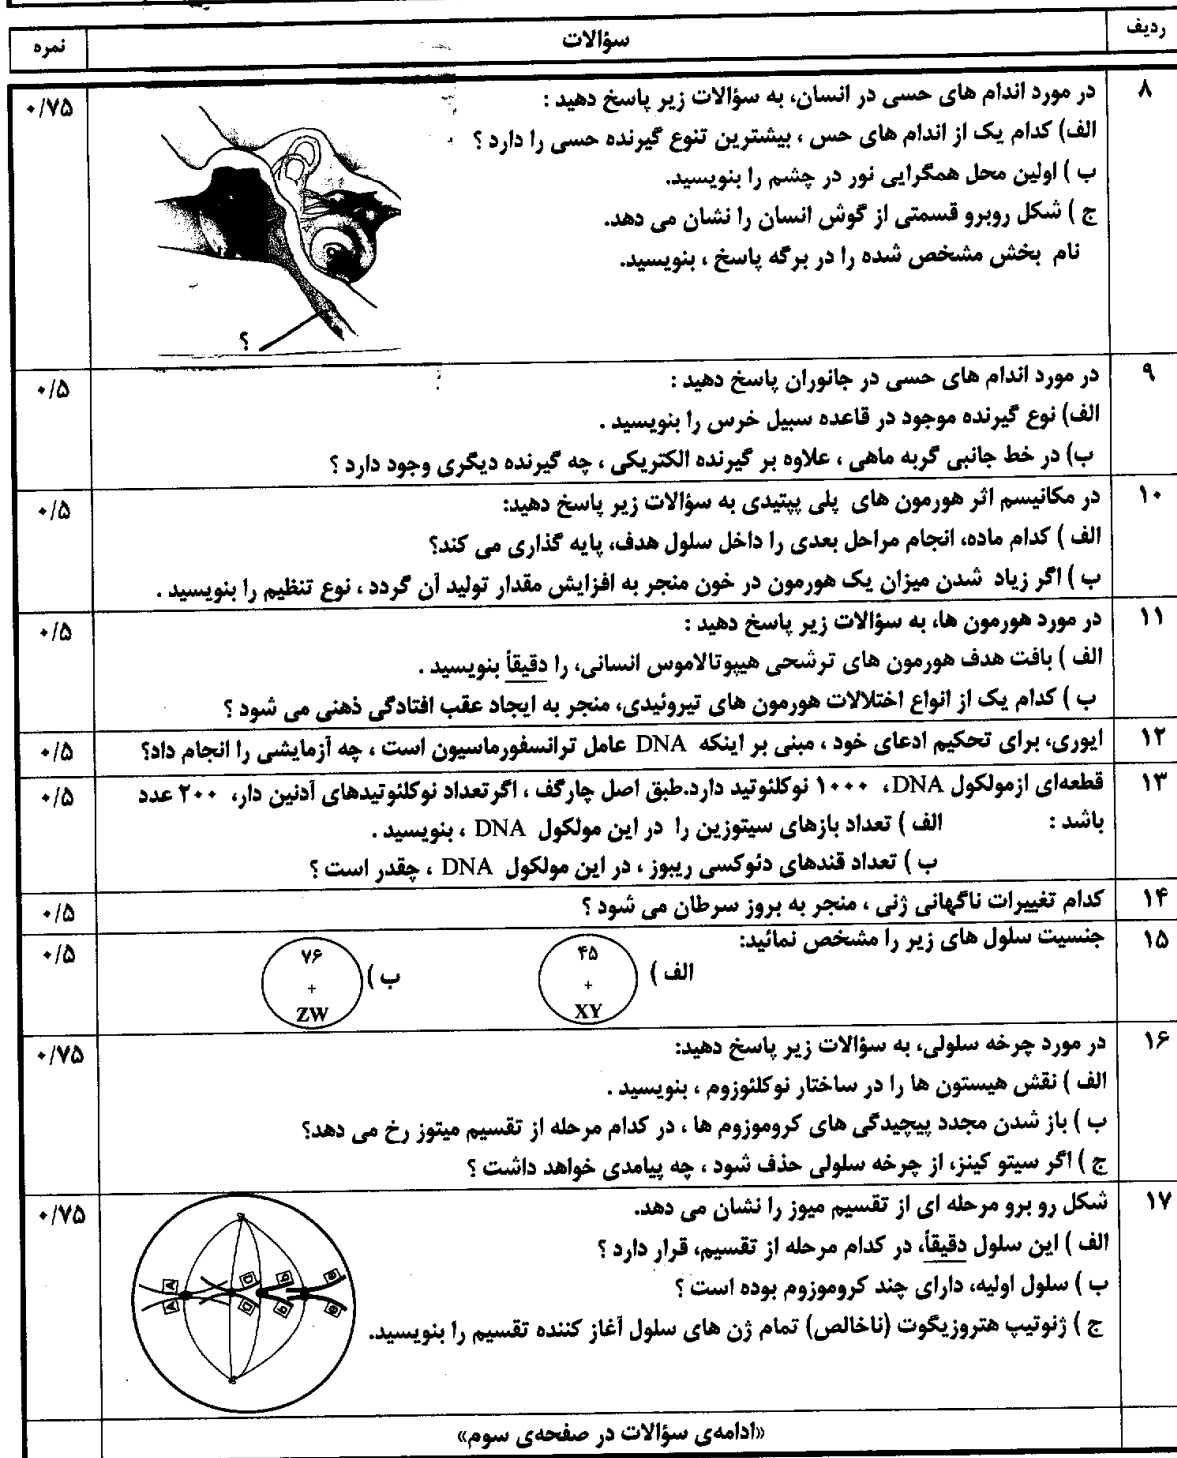 ردیف سؤالات نمره
۸ در مورد اندام های حسی در انسان، به سؤالات زیر پاسخ دهید : ۰/۷۵
الف) کدام یک از اندام های حس ، بیشترین تنوع گیرنده حسی را دارد ؟
ب ) اولین محل همگرایی نور در چشم را بنویسید.
ج ) شکل روبرو قسمتی از گوش انسان را نشان می دهد.
نام بخش مشخص شده را در برگه پاسخ ، بنویسید.
؟
۹ در مورد اندام های حسی در جانوران پاسخ دهید : ۰/۵
الف) نوع گیرنده موجود در قاعده سبیل خرس را بنویسید .
ب) در خط جانبی گربه ماهی ، علاوه بر گیرنده الکتریکی ، چه گیرنده دیگری وجود دارد ؟
۱۰ در مکانیسم اثر هورمون های پلی پپتیدی به سؤالات زیر پاسخ دهید: ۰/۵
الف ) کدام ماده، انجام مراحل بعدی را داخل سلول هدف، پایه گذاری می کند؟
ب ) اگر زیاد شدن میزان یک هورمون در خون منجر به افزایش مقدار تولید آن گردد ، نوع تنظیم را بنویسید .
۱۱ در مورد هورمون ها، به سؤالات زیر پاسخ دهید : ۰/۵
الف ) بافت هدف هورمون های ترشحی هیپوتالاموس انسانی، را دقیقاً بنویسید .
ب ) کدام یک از انواع اختلالات هورمون های تیروئیدی، منجر به ایجاد عقب افتادگی ذهنی می شود ؟
۱۲ ایوری، برای تحکیم ادعای خود ، مبنی بر اینکه DNA عامل ترانسفورماسیون است ، چه آزمایشی را انجام داد؟ ۰/۵
۱۳ قطعه‌ای ازمولکول DNA، ۱۰۰۰ نوکلئوتید دارد.طبق اصل چارگف ، اگرتعداد نوکلئوتیدهای آدنین دار، ۲۰۰ عدد ۰/۵
باشد : الف ) تعداد بازهای سیتوزین را در این مولکول DNA ، بنویسید .
ب ) تعداد قندهای دئوکسی ریبوز ، در این مولکول DNA ، چقدر است ؟
۱۴ کدام تغییرات ناگهانی ژنی ، منجر به بروز سرطان می شود ؟ ۰/۵
۱۵ جنسیت سلول های زیر را مشخص نمائید: ۰/۵
الف ) ۴۵ + XY ب ) ۷۶ + ZW
۱۶ در مورد چرخه سلولی، به سؤالات زیر پاسخ دهید: ۰/۷۵
الف ) نقش هیستون ها را در ساختار نوکلئوزوم ، بنویسید .
ب ) باز شدن مجدد پیچیدگی های کروموزوم ها ، در کدام مرحله از تقسیم میتوز رخ می دهد؟
ج ) اگر سیتو کینز، از چرخه سلولی حذف شود ، چه پیامدی خواهد داشت ؟
۱۷ شکل رو برو مرحله ای از تقسیم میوز را نشان می دهد. ۰/۷۵
الف ) این سلول دقیقاً، در کدام مرحله از تقسیم، قرار دارد ؟
ب ) سلول اولیه، دارای چند کروموزوم بوده است ؟
ج ) ژنوتیپ هتروزیگوت (ناخالص) تمام ژن های سلول آغاز کننده تقسیم را بنویسید.
A D b e
A D b e
«ادامه‌ی سؤالات در صفحه‌ی سوم»